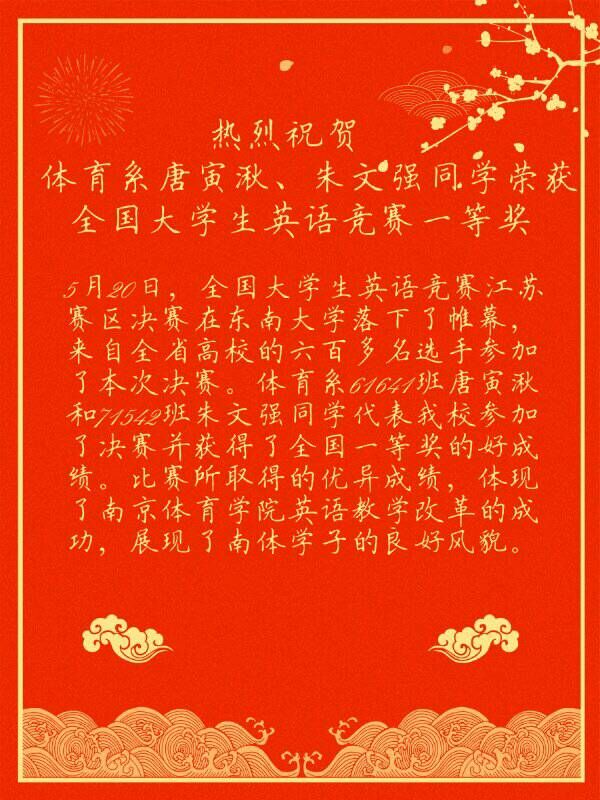 热烈祝贺
体育系唐寅湫、朱文强同学荣获
全国大学生英语竞赛一等奖
5月20日，全国大学生英语竞赛江苏
赛区决赛在东南大学落下了帷幕，
来自全省高校的六百多名选手参加
了本次决赛。体育系61641班唐寅湫
和71542班朱文强同学代表我校参加
了决赛并获得了全国一等奖的好成
绩。比赛所取得的优异成绩，体现
了南京体育学院英语教学改革的成
功，展现了南体学子的良好风貌。